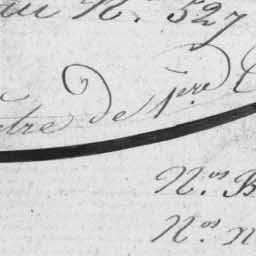 au N.º 527
tre de p.re C
N.os B
N.os n